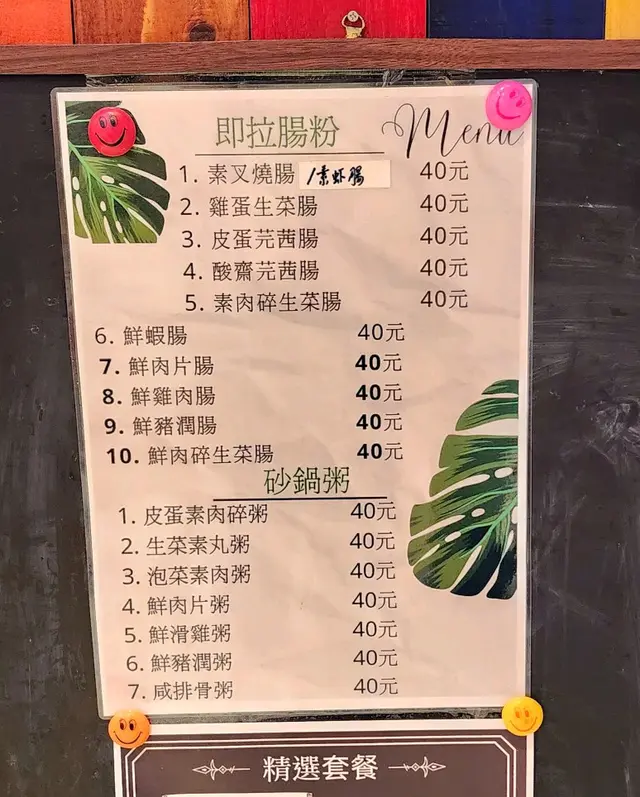 即拉腸粉 Menu
1. 素叉燒腸 /素虾腸 40元
2. 雞蛋生菜腸 40元
3. 皮蛋芫茜腸 40元
4. 酸齋芫茜腸 40元
5. 素肉碎生菜腸 40元
6. 鮮蝦腸 40元
7. 鮮肉片腸 40元
8. 鮮雞肉腸 40元
9. 鮮豬潤腸 40元
10. 鮮肉碎生菜腸 40元
砂鍋粥
1. 皮蛋素肉碎粥 40元
2. 生菜素丸粥 40元
3. 泡菜素肉粥 40元
4. 鮮肉片粥 40元
5. 鮮滑雞粥 40元
6. 鮮豬潤粥 40元
7. 咸排骨粥 40元
精選套餐